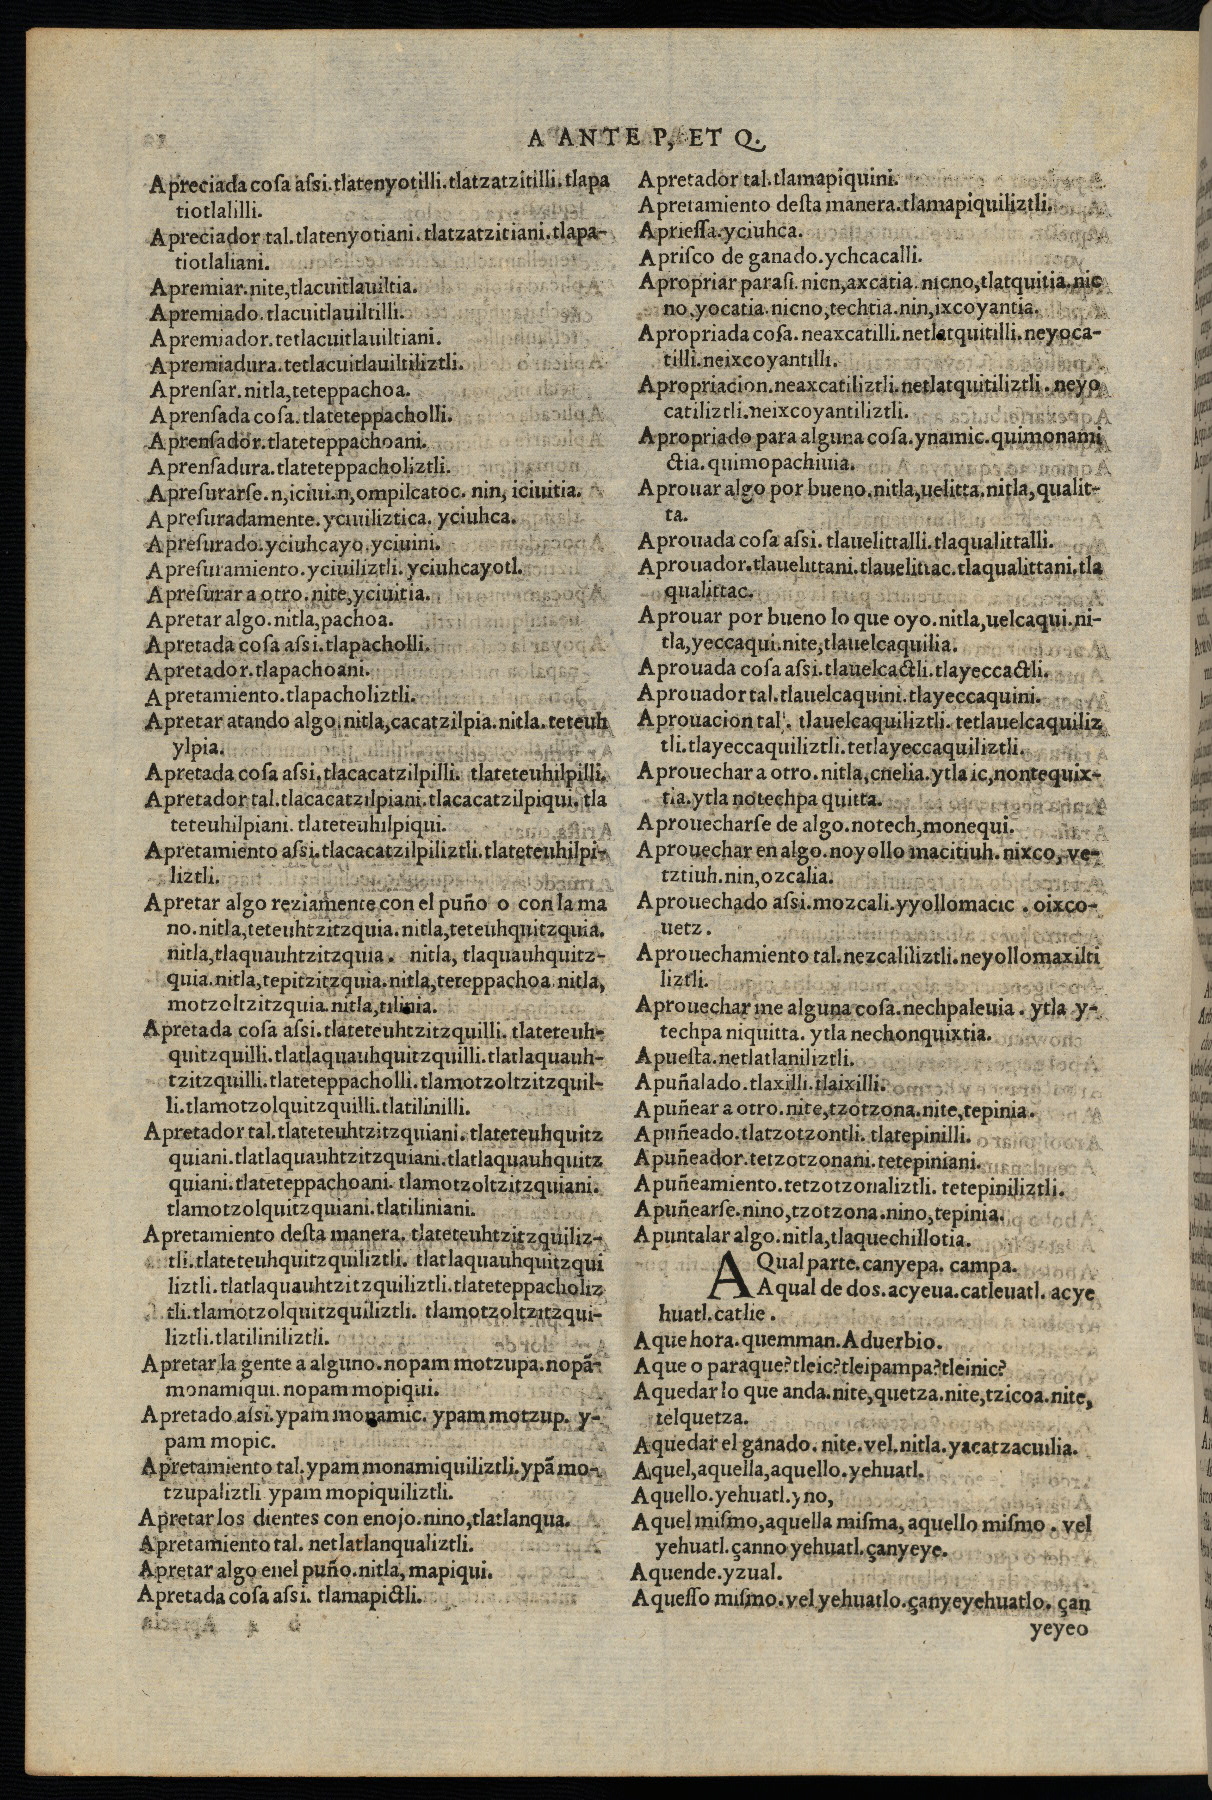 A ANTE P, ET Q.
Apreciada coſa aſsi.tlatenyotilli.tlatzatzitilli.tlapa
tiotlalilli.
Apreciador tal.tlatenyotiani.tlatzatzitiani.tlapa-
tiotlaliani.
Apremiar.nite,tlacuitlauiltia.
Apremiado.tlacuitlauiltilli.
Apremiador.tetlacuitlauiltiani.
Apremiadura.tetlacuitlauiltiliztli.
Aprenſar.nitla,teteppachoa.
Aprenſada coſa.tlateteppacholli.
Aprenſador.tlateteppachoani.
Aprenſadura.tlateteppacholiztli.
Apreſurarſe.n,iciui.n,ompilcatoc. nin, iciuitia.
Apreſuradamente.yciuiliztica. yciuhca.
Apreſurado.yciuhcayo.yciuini.
Apreſuramiento.yciuiliztli.yciuhcayotl.
Apreſurar a otro.nite,yciuitia.
Apretar algo.nitla,pachoa.
Apretada coſa aſsi.tlapacholli.
Apretador.tlapachoani.
Apretamiento.tlapacholiztli.
Apretar atando algo.nitla,cacatzilpia.nitla.teteuh
ylpia.
Apretada coſa aſsi.tlacacatzilpilli. tlateteuhilpilli.
Apretador tal.tlacacatzilpiani.tlacacatzilpiqui. tla
teteuhilpiani. tlateteuhilpiqui.
Apretamiento aſsi.tlacacatzilpiliztli.tlateteuhilpi-
liztli.
Apretar algo reziamente con el puño o con la ma
no.nitla,teteuhtzitzquia.nitla,teteuhquitzquia.
nitla,tlaquauhtzitzquia. nitla, tlaquauhquitz-
quia.nitla,tepitzitzquia.nitla,tereppachoa.nitla,
motzoltzitzquia.nitla,tilinia.
Apretada coſa aſsi.tlateteuhtzitzquilli. tlateteuh-
quitzquilli.tlatlaquauhquitzquilli.tlatlaquauh-
tzitzquilli.tlateteppacholli.tlamotzoltzitzquil-
li.tlamotzolquitzquilli.tlatilinilli.
Apretador tal.tlateteuhtzitzquiani.tlateteuhquitz
quiani.tlatlaquauhtzitzquiani.tlatlaquauhquitz
quiani.tlateteppachoani. tlamotzoltzitzquiani.
tlamotzolquitzquiani.tlatiliniani.
Apretamiento deſta manera. tlateteuhtzitzquiliz-
tli.tlateteuhquitzquiliztli. tlatlaquauhquitzqui
liztli.tlatlaquauhtzitzquiliztli.tlateteppacholiz
tli.tlamotzolquitzquiliztli. tlamotzoltzitzqui-
liztli.tlatiliniliztli.
Apretar la gente a alguno.nopam motzupa.nopã-
monamiqui.nopam mopiqui.
Apretado aſsi.ypam monamic. ypam motzup. y-
pam mopic.
Apretamiento tal.ypam monamiquiliztli.ypã mo-
tzupaliztli ypam mopiquiliztli.
Apretar los dientes con enojo.nino,tlatlanqua.
Apretamiento tal. netlatlanqualiztli.
Apretar algo enel puño.nitla, mapiqui.
Apretada coſa aſsi. tlamapictli.
Apretador tal.tlamapiquini.
Apretamiento deſta manera.tlamapiquiliztli.
Aprieſſa.yciuhca.
Apriſco de ganado.ychcacalli.
Apropriar paraſi.nicn,axcatia.nicno,tlatquitia.nic
no,yocatia.nicno,techtia.nin,ixcoyantia.
Apropriada coſa.neaxcatilli.netlatquitilli.neyoca-
tilli.neixcoyantilli.
Apropriacion.neaxcatiliztli.netlatquitiliztli.neyo
catiliztli.neixcoyantiliztli.
Apropriado para alguna coſa.ynamic.quimonami
ctia.quimopachiuia.
Aprouar algo por bueno.nitla,uelitta.nitla,qualit-
ta.
Aprouada coſa aſsi. tlauelittalli.tlaqualittalli.
Aprouador.tlauelittani.tlauelittac.tlaqualittani.tla
qualittac.
Aprouar por bueno lo que oyo.nitla,uelcaqui.ni-
tla,yeccaqui.nite,tlauelcaquilia.
Aprouada coſa aſsi.tlauelcactli.tlayeccactli.
Aprouador tal.tlauelcaquini.tlayeccaquini.
Aprouacion tal. tlauelcaquiliztli. tetlauelcaquiliz
tli.tlayeccaquiliztli.tetlayeccaquiliztli.
Aprouechar a otro.nitla,cnelia.ytla ic,nontequix-
tia.ytla notechpa quitta.
Aprouecharſe de algo.notech,monequi.
Aprouechar en algo.noyollo macitiuh.nixco, ve-
tztiuh.nin,ozcalia.
Aprouechado aſsi.mozcali.yyollomacic . oixco-
uetz.
Aprouechamiento tal.nezcaliliztli.neyollomaxilti
liztli.
Aprouecharme alguna coſa.nechpaleuia. ytla y-
techpa niquitta. ytla nechonquixtia.
Apueſta.netlatlaniliztli.
Apuñalado.tlaxilli.tlaixilli.
Apuñear a otro.nite,tzotzona.nite,tepinia.
Apuñeado.tlatzotzontli.tlatepinilli.
Apuñeador.tetzotzonani.tetepiniani.
Apuñeamiento.tetzotzonaliztli. tetepiniliztli.
Apuñearſe.nino,tzotzona.nino,tepinia.
Apuntalar algo.nitla,tlaquechillotia.
AQual parte.canyepa. campa.
Aqual de dos.acyeua.catleuatl. acye
huatl.catlie.
Aque hora.quemman.Aduerbio.
Aque o paraque?tleic?tleipampa?tleinic?
Aquedar lo que anda.nite,quetza.nite,tzicoa.nite,
telquetza.
Aquedar el ganado. nite.vel.nitla.yacatzacuilia.
Aquel,aquella,aquello.yehuatl.
Aquello.yehuatl.yno,
Aquel miſmo,aquella miſma, aquello miſmo . vel
yehuatl.çanno yehuatl.çanyeye.
Aquende.yzual.
Aqueſſo miſmo.vel yehuatlo.çanyeyehuatlo. çan
yeyeo